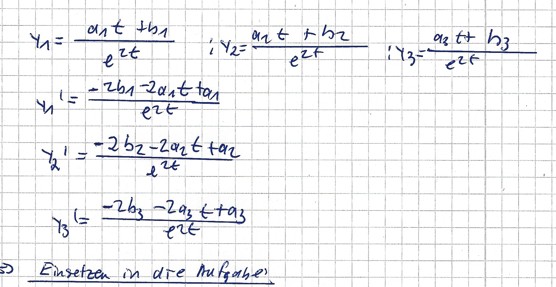 y₁ = (a₁t + b₁)/e^{2t} ; y₂ = (a₂t + b₂)/e^{2t} ; y₃ = (a₃t + b₃)/e^{2t}
y₁' = (-2b₁ - 2a₁t + a₁)/e^{2t}
y₂' = (-2b₂ - 2a₂t + a₂)/e^{2t}
y₃' = (-2b₃ - 2a₃t + a₃)/e^{2t}
Einsetzen in die Aufgabe: